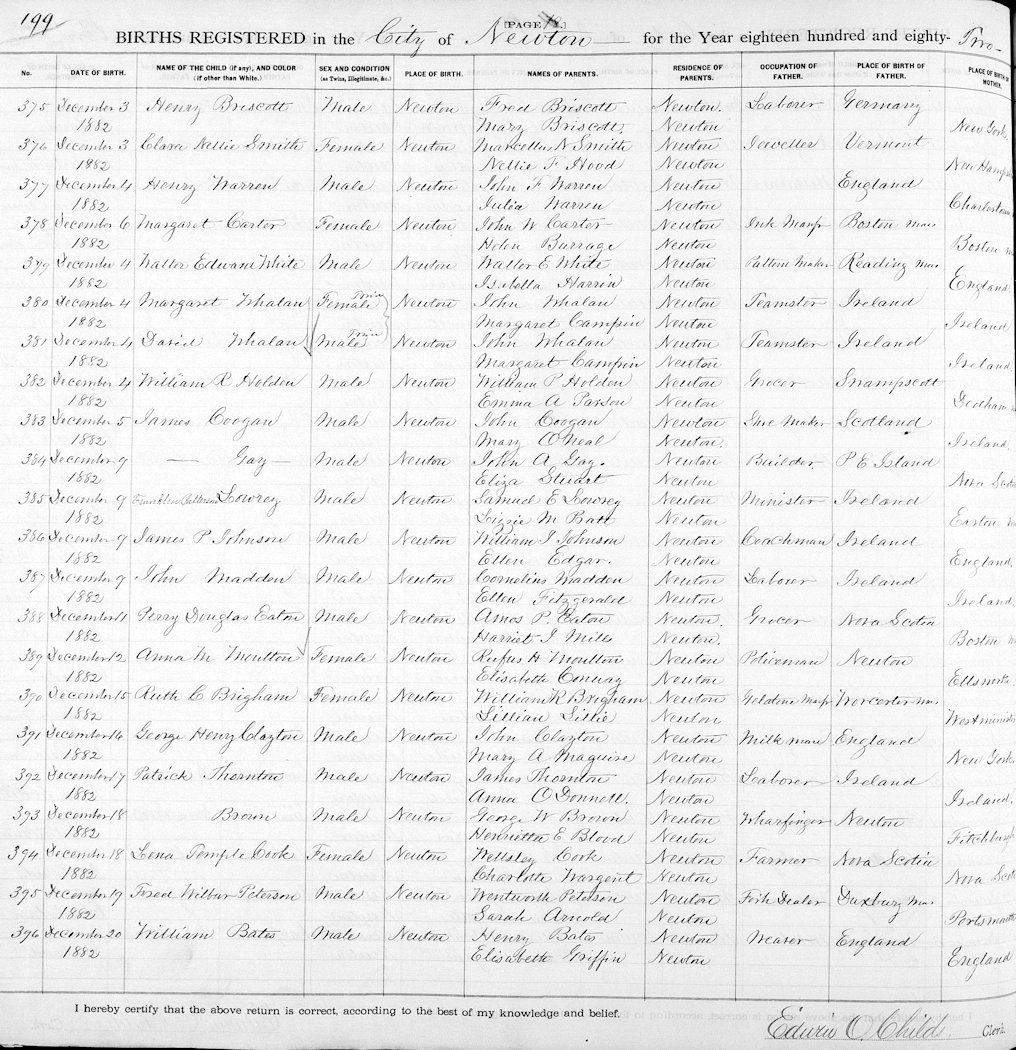 199
[PAGE 1.]
BIRTHS REGISTERED in the City of Newton for the Year eighteen hundred and eighty- Two-
No. DATE OF BIRTH. NAME OF THE CHILD (if any), AND COLOR (if other than White.) SEX AND CONDITION (as Twins, Illegitimate, &c.) PLACE OF BIRTH. NAMES OF PARENTS. RESIDENCE OF PARENTS. OCCUPATION OF FATHER. PLACE OF BIRTH OF FATHER. PLACE OF BIRTH OF MOTHER.
375 December 3 Henry Briscott Male Newton Fred Briscott Newton. Laborer Germany
1882 Mary Briscott. Newton New York
376 December 3 Clara Nellie Smith Female Newton Marcellus N Smith Newton Jeweller Vermont
1882 Nellie F Hood Newton New Hamps
377 December 4 Henry Warren Male Newton John F Warren Newton England
1882 Julia Warren Newton Charlestown
378 December 6 Margaret Carter Female Newton John W Carter Newton Ink Manfr Boston Mass
1882 Helen Burrage Newton Boston m
379 December 4 Walter Edward White Male Newton Walter E White Newton Pattern Maker Reading Mass
1882 Isabella Harrin Newton England
380 December 4 Margaret Whalan Female Twin Newton John Whalan Newton Teamster Ireland
1882 Margaret Campin Newton Ireland
381 December 4 David Whalan Male Twin Newton John Whalan Newton Teamster Ireland
1882 Margaret Campin Newton Ireland.
382 December 4 William R Holden Male Newton William P Holden Newton Grocer Swampscott
1882 Emma A Parson Newton Dedham m
383 December 5 James Coogan Male Newton John Coogan Newton Maker Scotland
1882 Mary O'Neal Newton. Ireland.
384 December 9 — Gay — Male Newton John A Gay. Newton Builder P E Island
1882 Eliza Stuart Newton Nova Scotia
385 December 9 Franklin Lowrey Male Newton Samuel E Lowrey Newton Minister Ireland
1882 Lizzie M Pratt Newton Easton m
386 December 9 James P Johnson Male Newton William J Johnson Newton Coachman Ireland
1882 Ellen Edgar. Newton England,
387 December 9 John Madden Male Newton Cornelius Madden Newton Laborer Ireland
1882 Ellen Fitzgerald Newton Ireland.
388 December 11 Perry Douglas Eaton Male Newton Amos P. Eaton Newton. Grocer Nova Scotia
1882 Harriet J Mills Newton. Boston m
389 December 12 Anna M Moulton Female Newton Rufus H Moulton Newton Policeman Newton
1882 Elisabeth Conway Newton Ellsworth
390 December 15 Ruth C Brigham Female Newton William R Brigham Newton Manfr Worcester Mass
1882 Lillian Lillie Newton Westminister
391 December 16 George Henry Clayton Male Newton John Clayton Newton Milk man England
1882 Mary A Maguire Newton New York
392 December 17 Patrick Thornton Male Newton James Thornton Newton Laborer Ireland
1882 Anna O'Donnell. Newton Ireland.
393 December 18 Brown Male Newton George W Brown Newton Wharfinger Newton
1882 Henrietta E Blood Newton Fitchburgh
394 December 18 Lena Temple Cook Female Newton Wellsley Cook Newton Farmer Nova Scotia
1882 Charlotte Wargent Newton Nova Scot
395 December 19 Fred Wilbur Peterson Male Newton Wentworth Peterson Newton Fish Dealer Duxbury Mass
1882 Sarah Arnold Newton Portsmouth
396 December 20 William Bates Male Newton Henry Bates Newton Weaver England
1882 Elisabeth Griffin Newton England
I hereby certify that the above return is correct, according to the best of my knowledge and belief.
Edwin O. Childs. Clerk.